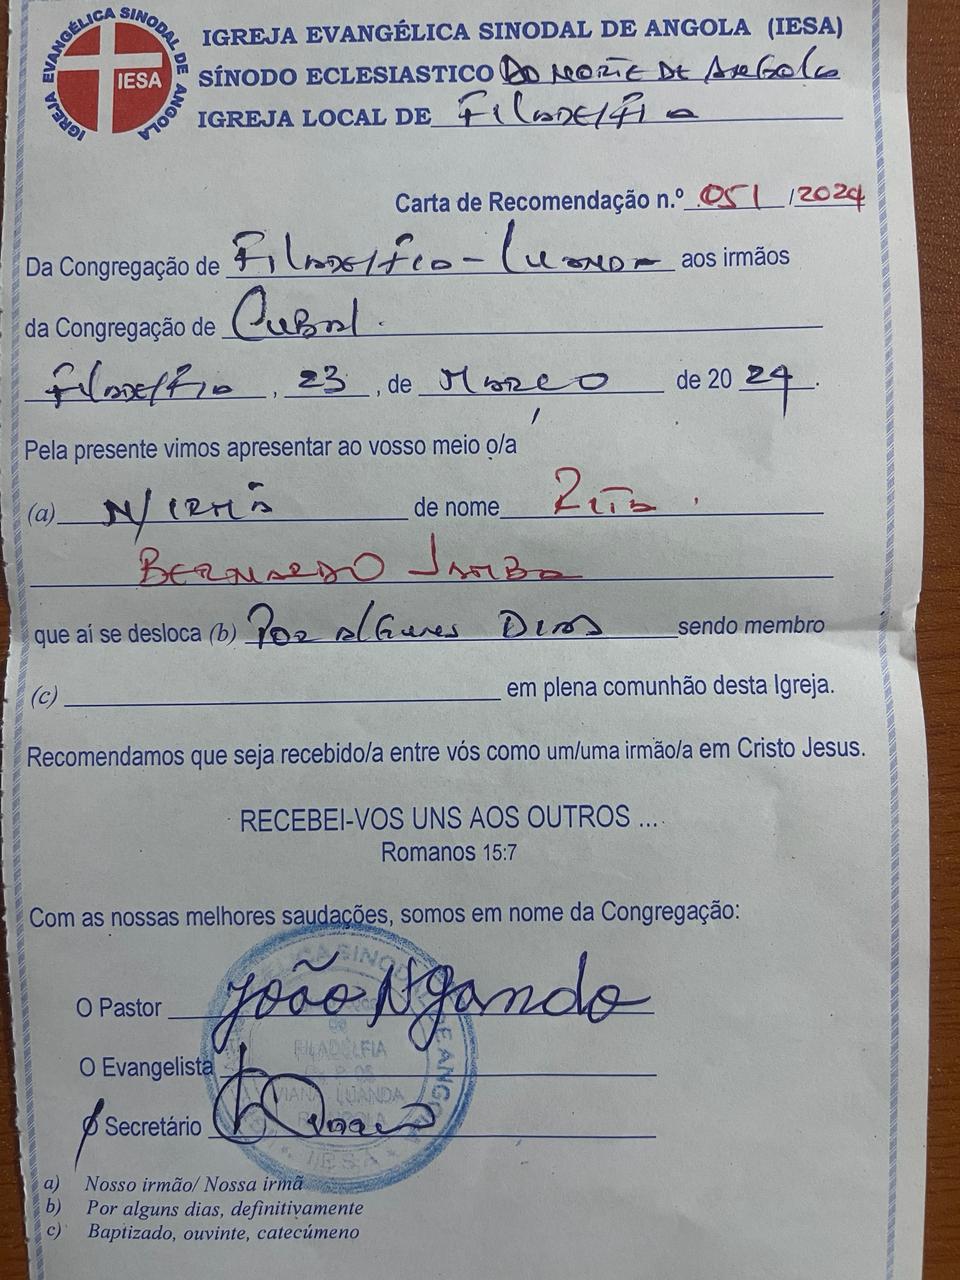 IGREJA EVANGÉLICA SINODAL DE ANGOLA
IESA
IGREJA EVANGÉLICA SINODAL DE ANGOLA (IESA)
SÍNODO ECLESIASTICO DO NORTE DE ANGOLA
IGREJA LOCAL DE FILADELFIA
Carta de Recomendação n.º 051 /2024
Da Congregação de FILADELFIA - LUANDA aos irmãos
da Congregação de CUBAL.
FILADELFIA, 23, de MARÇO de 20 24.
Pela presente vimos apresentar ao vosso meio o/a
(a) N/IRMÃ de nome RITA
BERNARDO JAMBA
que aí se desloca (b) POR ALGUNS DIAS sendo membro
(c) em plena comunhão desta Igreja.
Recomendamos que seja recebido/a entre vós como um/uma irmão/a em Cristo Jesus.
RECEBEI-VOS UNS AOS OUTROS ...
Romanos 15:7
Com as nossas melhores saudações, somos em nome da Congregação:
O Pastor João Ngando
O Evangelista
Secretário
FILADÉLFIA
VIANA LUANDA
IESA
a) Nosso irmão/ Nossa irmã
b) Por alguns dias, definitivamente
c) Baptizado, ouvinte, catecúmeno